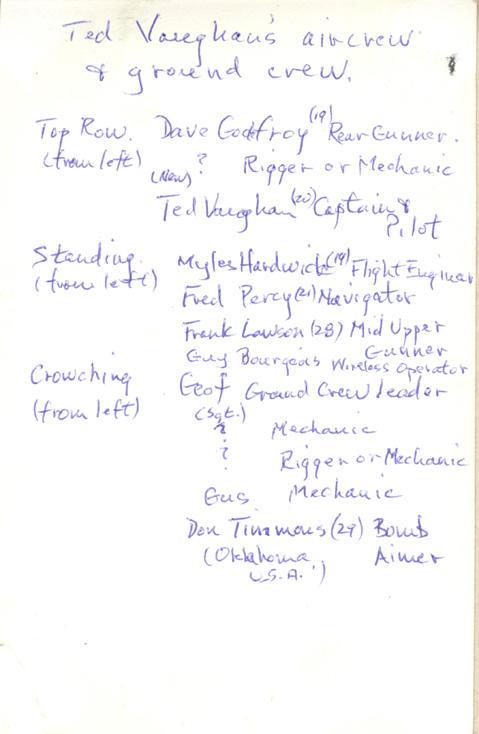 Ted Vaughan's aircrew
& ground crew.
Top Row. Dave Godfroy (19) Rear Gunner.
(from left) ? Rigger or Mechanic
Ted Vaughan (20) Captain &
Pilot
Standing Myles Hardwick (19) Flight Engineer
(from left) Fred Percy (21) Navigator
Frank Lawson (28) Mid Upper
Gunner
Guy Bourgeois Wireless Operator
Crowching Geof Ground Crew leader
(from left) (Sgt.)
? Mechanic
? Rigger or Mechanic
Gus Mechanic
Don Tinamous (29) Bomb
(Oklahoma Aimer
U.S.A.)